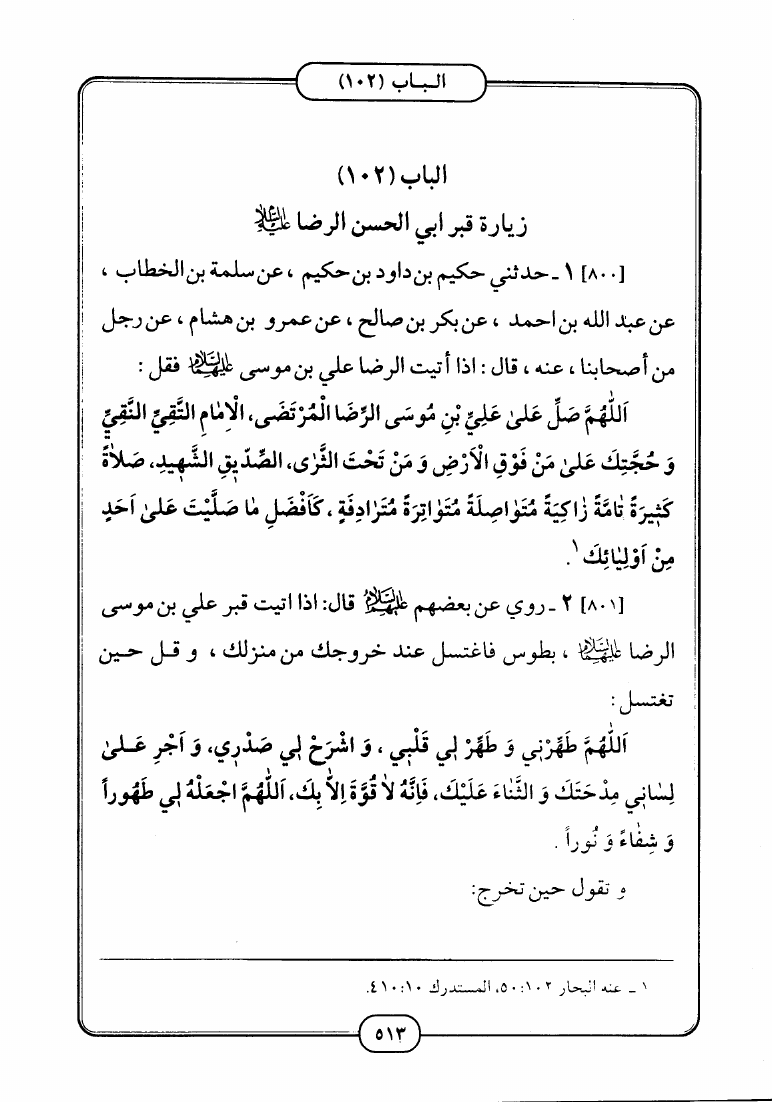 الباب (١٠٢)
الباب (١٠٢)
زيارة قبر ابي الحسن الرضا عليه السلام
[٨٠٠] ١ ـ حدثني حكيم بن داود بن حكيم ، عن سلمة بن الخطاب ،
عن عبد الله بن احمد ، عن بكر بن صالح ، عن عمرو بن هشام ، عن رجل
من أصحابنا ، عنه ، قال : اذا أتيت الرضا علي بن موسى عليهما السلام فقل :
اَللّٰهُمَّ صَلِّ عَلىٰ عَلِيِّ بْنِ مُوسَى الرِّضَا الْمُرْتَضَى، الْاِمٰامِ التَّقِيِّ النَّقِيِّ
وَ حُجَّتِكَ عَلىٰ مَنْ فَوْقِ الْاَرْضِ وَ مَنْ تَحْتَ الثَّرٰى، الصِّدّيقِ الشَّهيدِ، صَلاٰةً
كَثيرَةً تٰامَّةً زٰاكِيَةً مُتَوٰاصِلَةً مُتَوٰاتِرَةً مُتَرٰادِفَةٍ ، كَاَفْضَلِ مٰا صَلَّيْتَ عَلىٰ اَحَدٍ
مِنْ اَوْلِيٰائِكَ ١.
[٨٠١] ٢ ـ روي عن بعضهم عليهم السلام قال: اذا اتيت قبر علي بن موسى
الرضا عليهما السلام ، بطوس فاغتسل عند خروجك من منزلك ، و قل حين
تغتسل :
اَللّٰهُمَّ طَهِّرْني وَ طَهِّرْ لي قَلْبي ، وَ اشْرَحْ لي صَدْري، وَ اَجْرِ عَلىٰ
لِسٰاني مِدْحَتَكَ وَ الثَّنٰاءَ عَلَيْكَ، فَاِنَّهُ لاٰ قُوَّةَ اِلاّٰ بِكَ، اَللّٰهُمَّ اجْعَلْهُ لي طَهُوراً
وَ شِفٰاءً وَ نُوراً .
و تقول حين تخرج:
١ ـ عنه البحار ١٠٢:٥٠، المستدرك ٤١٠:١٠.
٥١٣